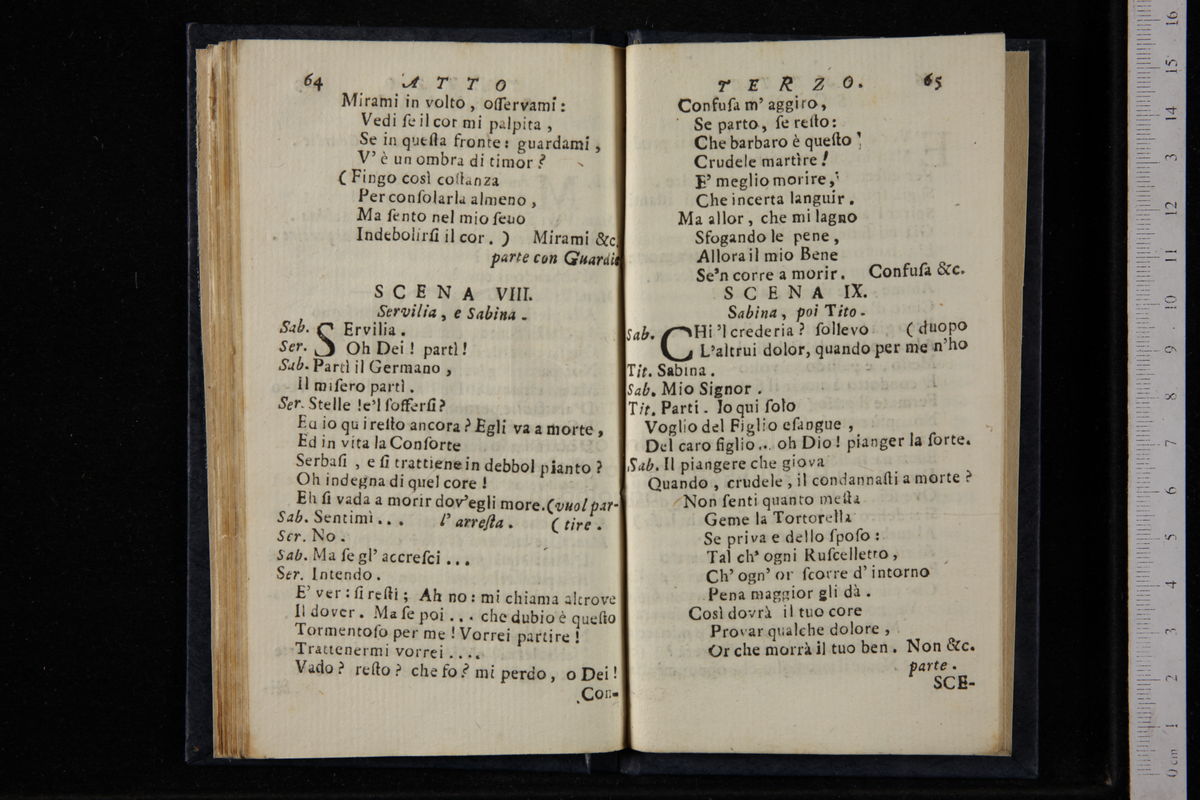 64 ATTO
Mirami in volto, oſſervami:
Vedi ſe il cor mi palpita,
Se in queſta fronte: guardami,
V' è un ombra di timor?
(Fingo così coſtanza
Per conſolarla almeno,
Ma ſento nel mio ſeno
Indebolirſi il cor.) Mirami &c.
parte con Guardie
SCENA VIII.
Servilia, e Sabina.
Sab. SErvilia.
Ser. Oh Dei! partì!
Sab. Partì il Germano,
Il miſero partì.
Ser. Stelle! e'l ſofferſi?
Ed io qui reſto ancora? Egli va a morte,
Ed in vita la Conſorte
Serbaſi, e ſi trattiene in debbol pianto?
Oh indegna di quel core!
Eh ſi vada a morir dov'egli more. (vuol par-
Sab. Sentimi... l' arreſta. (tire.
Ser. No.
Sab. Ma ſe gl' accreſci...
Ser. Intendo.
E' ver: ſi reſti; Ah no: mi chiama altrove
Il dover. Ma ſe poi... che dubio è queſto
Tormentoſo per me! Vorrei partire!
Trattenermi vorrei....
Vado? reſto? che fo? mi perdo, o Dei!
Con-
TERZO. 65
Confuſa m' aggiro,
Se parto, ſe reſto:
Che barbaro è queſto
Crudele martìre!
E' meglio morire,
Che incerta languir.
Ma allor, che mi lagno
Sfogando le pene,
Allora il mio Bene
Se'n corre a morir. Confuſa &c.
SCENA IX.
Sabina, poi Tito.
Sab. CHi 'l crederia? ſollevo (duopo
L'altrui dolor, quando per me n'ho
Tit. Sabina.
Sab. Mio Signor.
Tit. Parti. Io qui ſolo
Voglio del Figlio eſangue,
Del caro figlio... oh Dio! pianger la ſorte.
Sab. Il piangere che giova
Quando, crudele, il condannaſti a morte?
Non ſenti quanto meſta
Geme la Tortorella
Se priva e dello ſpoſo:
Tal ch' ogni Ruſcelletto,
Ch' ogn' or ſcorre d' intorno
Pena maggior gli dà.
Così dovrà il tuo core
Provar qualche dolore,
Or che morrà il tuo ben. Non &c.
parte.
SCE-
16
15
14
3
12
11
10
9
8
7
6
5
4
3
2
1
0 cm